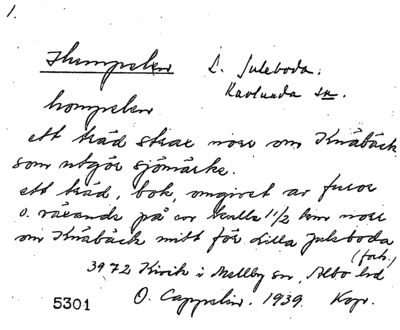 1.
Humpelen L. Juleboda.
Ravlunda sn.
hompelen
ett träd strax norr om Knäbäck
som utgör sjömärke.
ett träd, bok, omgivet av furor
o. växande på en kulle 1 1/2 km norr
om Knäbäck mitt för Lilla Juleboda
(forts.)
3972 Kivik i Mellby sn, Albo hd
5301 O. Cappelin. 1939. Kop.